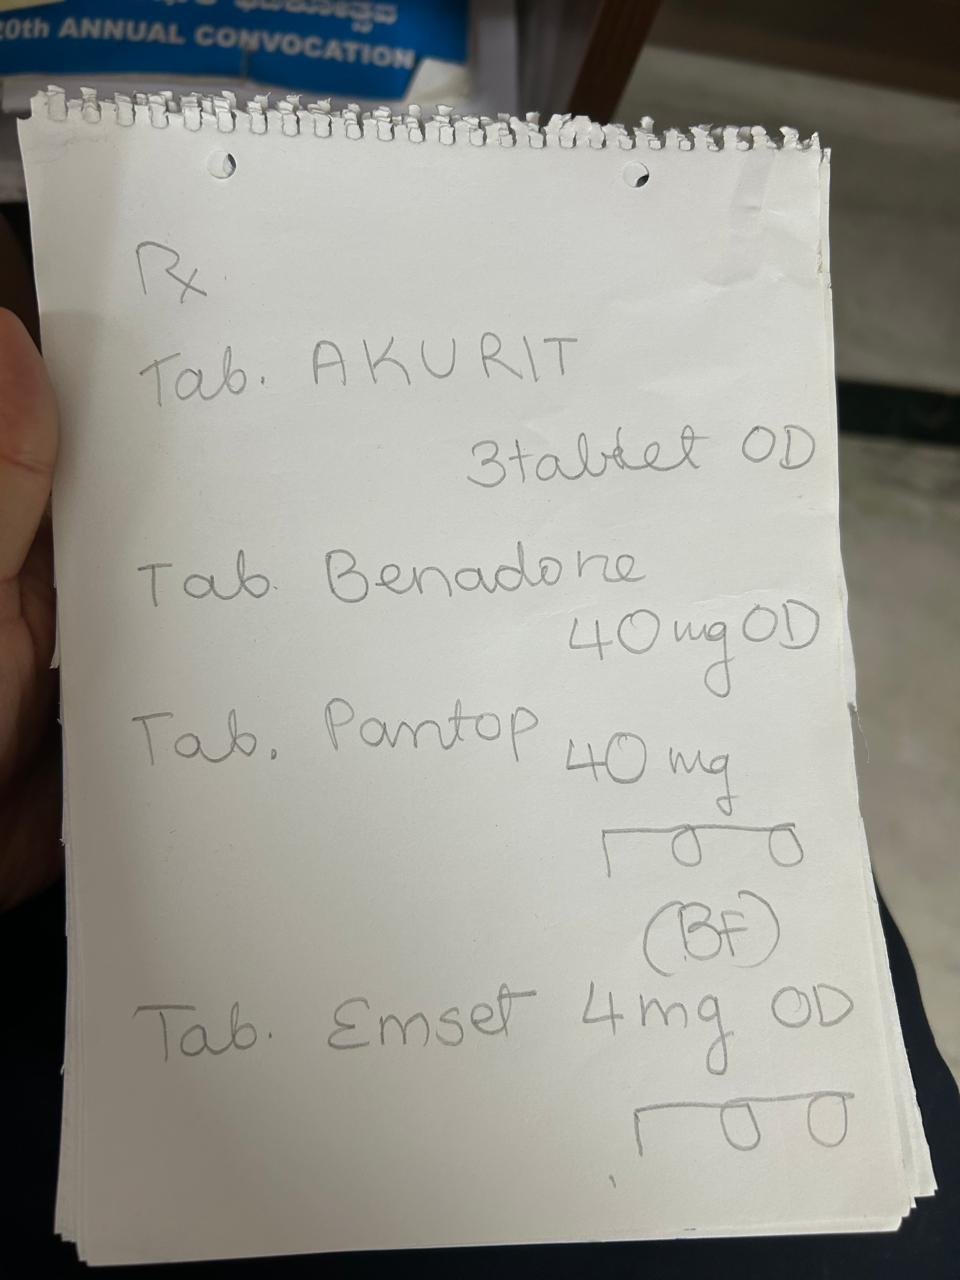 20th ANNUAL CONVOCATION
Rx
Tab. AKURIT
3tablet OD
Tab. Benadone
40mg OD
Tab. Pantop
40 mg
1 0 0
(BF)
Tab. Emset 4mg OD
1 0 0